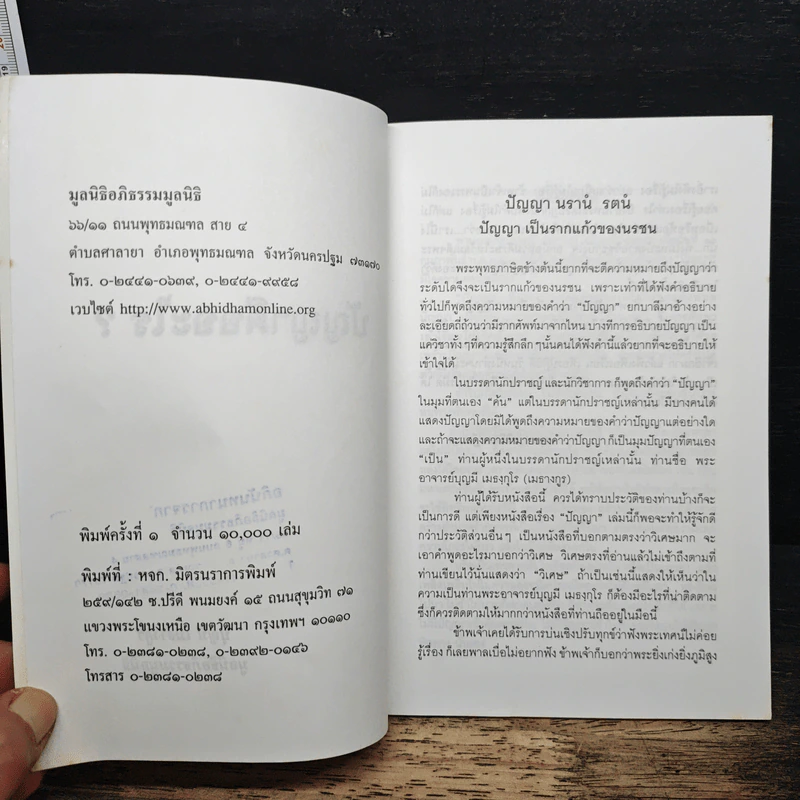 มูลนิธิอภิธรรมมูลนิธิ
๖๖/๑๑ ถนนพุทธมณฑล สาย ๔
ตำบลศาลายา อำเภอพุทธมณฑล จังหวัดนครปฐม ๗๓๑๗๐
โทร. ๐-๒๔๔๑-๐๖๓๙, ๐-๒๔๔๑-๙๙๕๘
เวบไซต์ http://www.abhidhamonline.org
พิมพ์ครั้งที่ ๑ จำนวน ๑๐,๐๐๐ เล่ม
พิมพ์ที่ : หจก. มิตรนราการพิมพ์
๒๕๙/๑๔๒ ซ.ปรีดี พนมยงค์ ๑๕ ถนนสุขุมวิท ๗๑
แขวงพระโขนงเหนือ เขตวัฒนา กรุงเทพฯ ๑๐๑๑๐
โทร. ๐-๒๓๘๑-๐๒๓๘, ๐-๒๓๙๒-๐๑๔๖
โทรสาร ๐-๒๓๘๑-๐๒๓๘
ปัญญา นรานํ รตนํ
ปัญญา เป็นรากแก้วของนรชน
พระพุทธภาษิตข้างต้นนี้ยากที่จะตีความหมายถึงปัญญาว่า
ระดับใดจึงจะเป็นรากแก้วของนรชน เพราะเท่าที่ได้ฟังคำอธิบาย
ทั่วไปก็พูดถึงความหมายของคำว่า “ปัญญา” ยกบาลีมาอ้างอย่าง
ละเอียดถี่ถ้วนว่ามีรากศัพท์มาจากไหน บางทีการอธิบายปัญญา เป็น
แค่วิชาทั้ง ๆที่ความรู้สึกลึก ๆนั้นคนได้ฟังคำนี้แล้วยากที่จะอธิบายให้
เข้าใจได้
ในบรรดานักปราชญ์ และนักวิชาการ ก็พูดถึงคำว่า “ปัญญา”
ในมุมที่ตนเอง “ค้น” แต่ในบรรดานักปราชญ์เหล่านั้น มีบางคนได้
แสดงปัญญาโดยมิได้พูดถึงความหมายของคำว่าปัญญาแต่อย่างใด
และถ้าจะแสดงความหมายของคำว่าปัญญา ก็เป็นมุมปัญญาที่ตนเอง
“เป็น” ท่านผู้หนึ่งในบรรดานักปราชญ์เหล่านั้น ท่านชื่อ พระ
อาจารย์บุญมี เมธงฺกุโร (เมธางกูร)
ท่านผู้ได้รับหนังสือนี้ ควรได้ทราบประวัติของท่านบ้างก็จะ
เป็นการดี แต่เพียงหนังสือเรื่อง “ปัญญา” เล่มนี้ก็พอจะทำให้รู้จักดี
กว่าประวัติส่วนอื่นๆ เป็นหนังสือที่บอกตามตรงว่าวิเศษมาก จะ
เอาคำพูดอะไรมาบอกว่าวิเศษ วิเศษตรงที่อ่านแล้วไม่เข้าถึงตามที่
ท่านเขียนไว้นั่นแสดงว่า “วิเศษ” ถ้าเป็นเช่นนี้แสดงให้เห็นว่าใน
ความเป็นท่านพระอาจารย์บุญมี เมธงฺกุโร ก็ต้องมีอะไรที่น่าติดตาม
ซึ่งก็ควรติดตามให้มากกว่าหนังสือที่ท่านถืออยู่ในมือนี้
ข้าพเจ้าเคยได้รับการบ่นเชิงปรับทุกข์ว่าฟังพระเทศน์ไม่ค่อย
รู้เรื่อง ก็เลยพาลเบื่อไม่อยากฟัง ข้าพเจ้าก็บอกว่าพระยิ่งเก่งยิ่งภูมิสูง